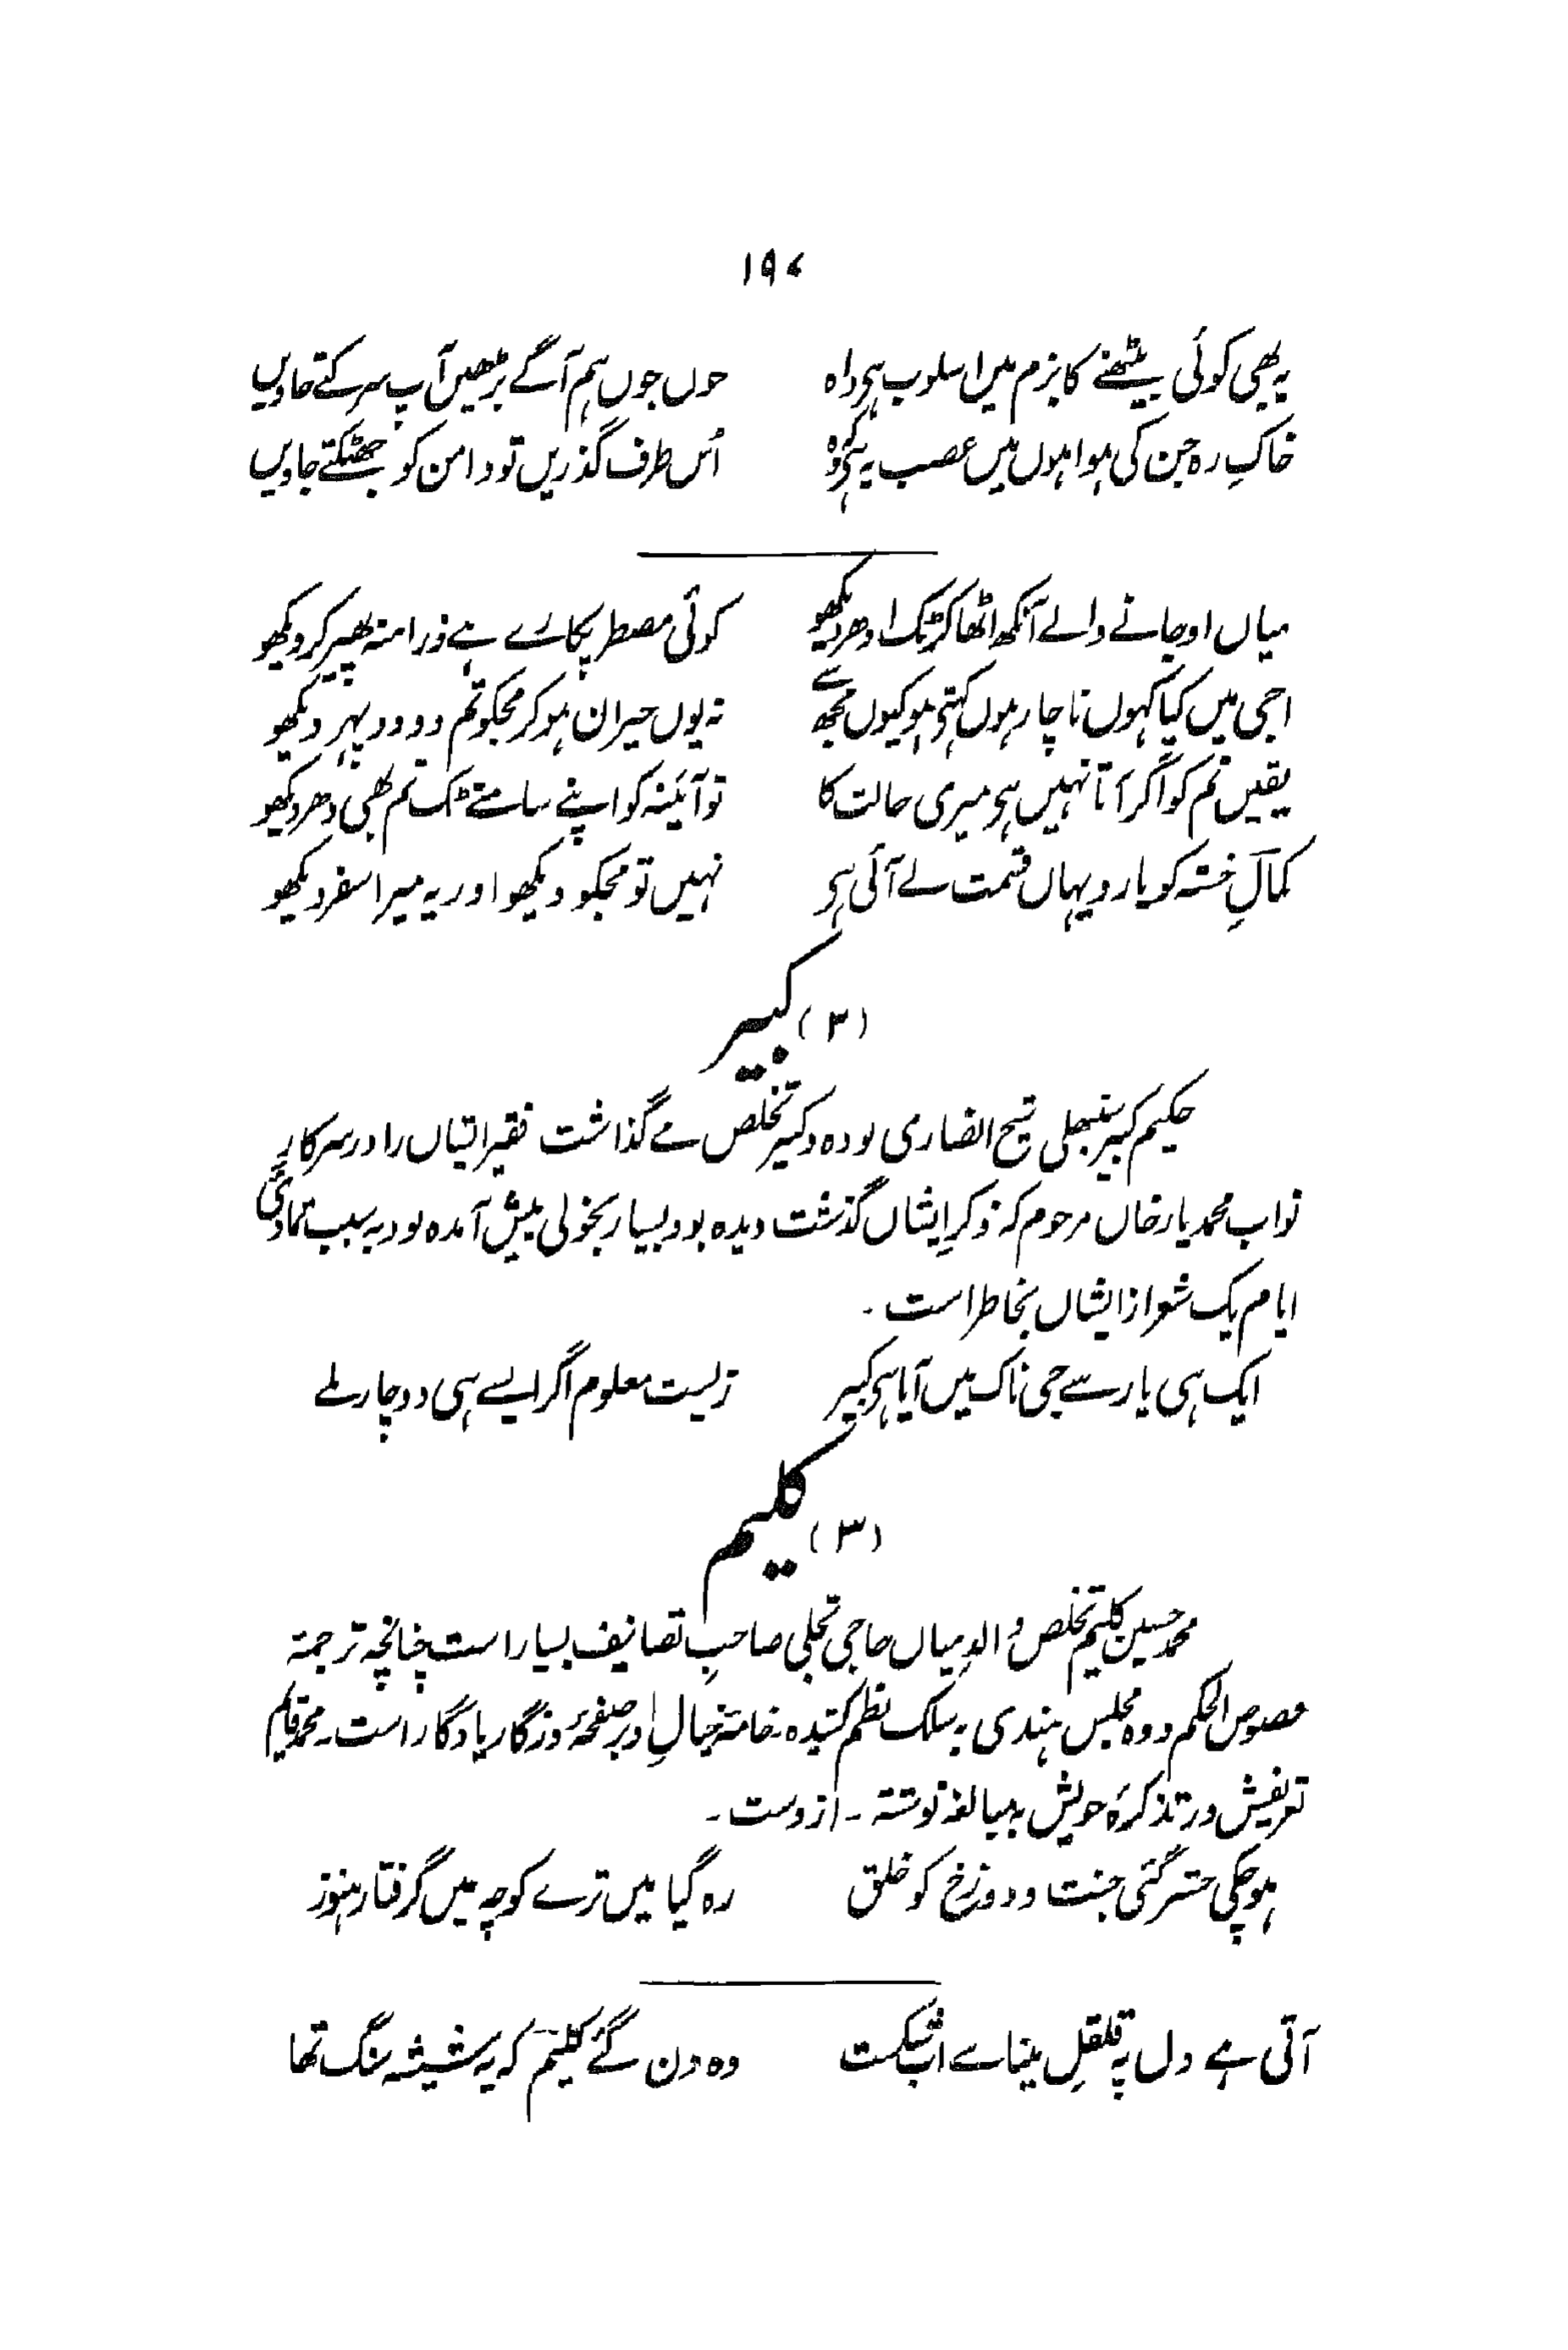 ۱۹۷
یہ بھی کوئی بیٹھنے کا بزم میں اسلوب ہی واہ جوں جوں ہم آگے بڑھیں آپ سرکتے جاویں
خاکِ رہ جن کی ہوا ہوں میں غضب یہ ہی کہ وہ اُس طرف گذریں تو دامن کو جھٹکتے جاویں
میاں او جانے والے آنکھ اٹھا کر ٹک ادھر دیکھو کوئی مضطر پکارے ہے ذرا منہ پھیر کر دیکھو
اجی میں کیا کہوں ناچار ہوں کہتی ہو کیوں مجھ سے نہ یوں حیران ہو کر مجکو تم دو دو پہر دیکھو
یقیں تم کو اگر آتا نہیں ہی میری حالت کا تو آئینہ کو اپنے سامنے ٹک تم بھی دھر دیکھو
کمالِ خستہ کو یارو یہاں قسمت لے آئی ہی نہیں تو مجکو دیکھو اور یہ میرا سفر دیکھو
(۳) کبیر
حکیم کبیر سنبھلی شیخ انصاری بودہ و کبیر تخلص مے گذاشت فقیر ایشاں را در سرکار
نواب محمد یار خاں مرحوم کہ ذکرِ ایشاں گذشت دیدہ بود بسیار بخوبی پیش آمدہ بود بہ سبب تمادیِ
ایام یک شعر از ایشاں بخاطر است ۔
ایک ہی یار سے جی ناک میں آیا ہی کبیر زیست معلوم اگر ایسے ہی دو چار ملے
(۳) کلیم
محمد حسین کلیم تخلص والدِ میاں حاجی تجلی صاحبِ تصانیف بسیار است چنانچہ ترجمۃ
فصوص الحکم و دہ مجلس ہندی بہ سلک نظم کشیدہ ۔ خامۂ خیالِ او بر صفحۂ روزگار یادگار است ۔ محمد قایم
تعریفش در تذکرۂ خویش بہ مبالغہ نوشتہ ۔ از وست ۔
ہو چکی حشر گئی جنت و دوزخ کو خلق رہ گیا میں ترے کوچہ میں گرفتار ہنوز
آتی ہے دل پہ قلقلِ مینا سے اب شکست وہ دن گئے کلیم کہ یہ شیشہ سنگ تھا